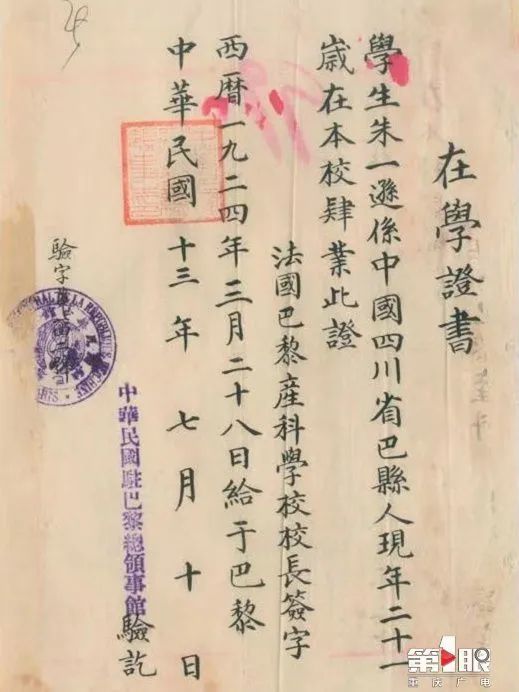 在學證書
學生朱一遜係中國四川省巴縣人現年二十一
歲在本校肄業此證
法國巴黎産科學校校長簽字
西曆一九二四年三月二十八日給于巴黎
中華民國十三年七月十日
中華民國駐巴黎總領事館驗訖
驗字
第1眼
重庆广电